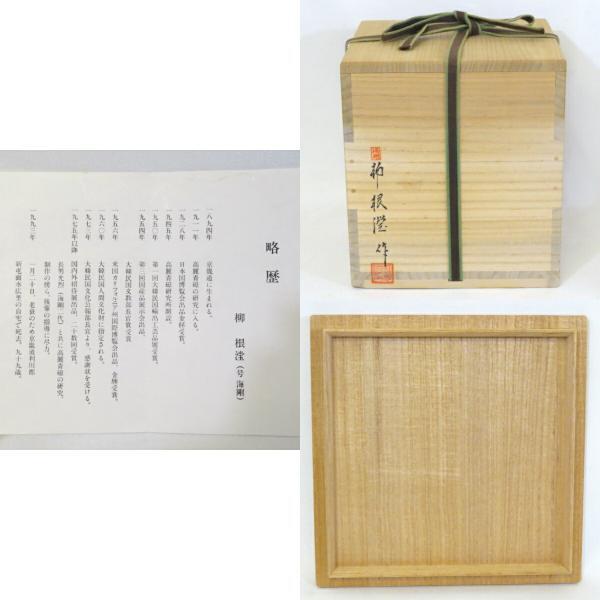 略歴
柳 根瀅（号 海剛）
一八九四年 京畿道に生まれる。
一九一一年 高麗青磁の研究に入る。
一九二八年 日本国博覧会出品金杯受賞。
一九四五年 高麗青磁研究所開設。
第一回大韓民国輸出工芸品展受賞。
一九五四年 第三回国産品展示会出品。
大韓民国文教部長官賞受賞
一九五六年 米国カリフォルニア州国際博覧会出品、金牌受賞。
一九六〇年 大韓民国人間文化財に指定される。
一九七三年 大韓民国文化公報部長官より、感謝状を受ける。
一九七五年以降 国内外招待展出品、二十数回受賞。
長男光烈（海剛二代）と共に高麗青磁の研究、
制作の傍ら、後輩の指導に尽力。
一九九三年 一月二十日、老衰のため京畿道利川郡
新屯面水広里の自宅で死去。九十九歳。
柳根瀅作